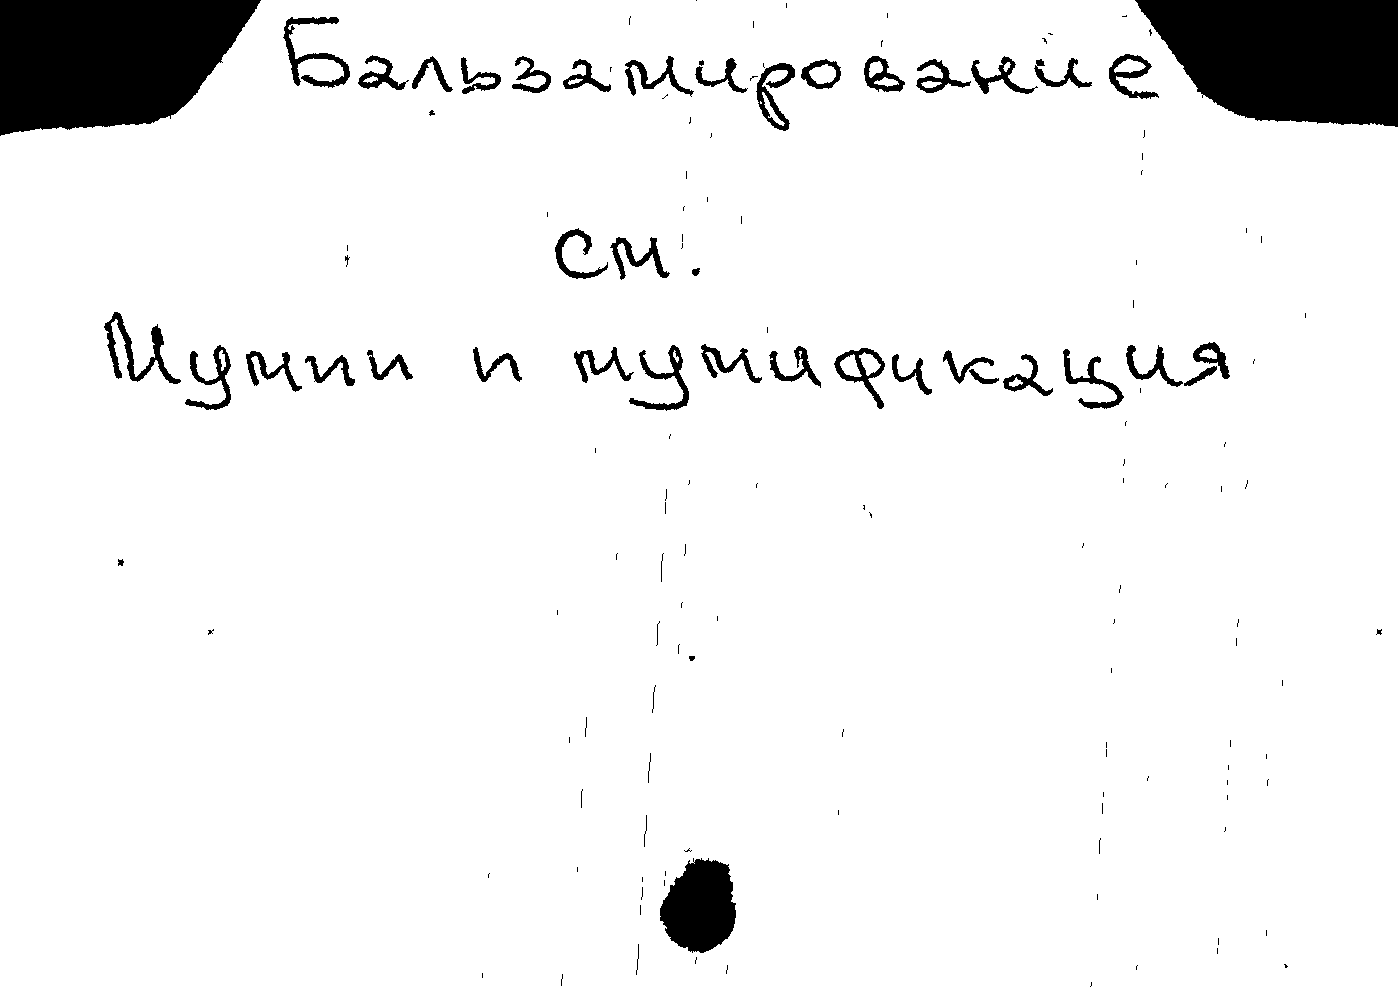 Бальзамирование
см.
Мумии и мумификация